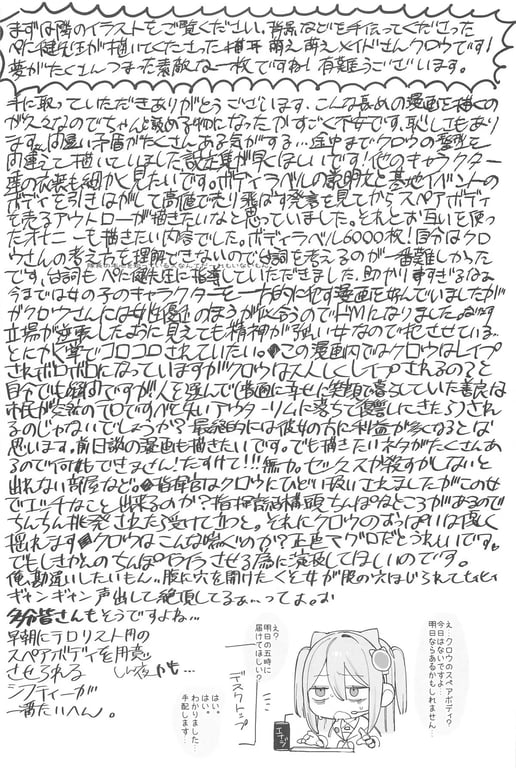 まずは隣のイラストをご覧ください。背景などを手伝ってくださった
ペに健先生が描いてくださった 萌え萌えメイドさんクロウです!
夢がたくさんつまった素敵な一枚ですね!有難うございます。
手に取っていただきありがとうございます。こんな長めの漫画を描くの
が久々なのでちゃんと読める物になったかすごく不安です。恥しさもあり
ます。間違い矛盾がたくさんある気がする…途中までクロウの髪型を
間違えて描いていました 設定集が早くほしいです!他のキャラクター
達の衣装も細かく見たいです。ボディラベルの説明文と基地イベントの
ボディを引きはがして高値で売り飛ばす発言を見てからスペアボディ
を売るアウトローが描きたいなと思っていました。それとお互いを使っ
たオナニーも描きたい内容でした。ボディラベル6000枚!自分はクロ
ウさんの考え方を理解できないので台詞を考えるのが一番難しかった
です、台詞もペに健先生に指導していただきました 助かりすぎるなぁ
今までは女の子のキャラクターを一方的に犯す漫画を好んでいましたが
がクロウさんには女性優位のほうが似合うのでドMになりました。
立場が逆転したように見えても精神が強い女なので犯させている…
とにかく掌でコロコロされていたい。この漫画内ではクロウはレイプ
されボロボロになっていますがクロウは大人しくレイプされるの?と
自分でも ですが!人を選んで
市民が のテロですべて失いアウターリムに落ちて復讐にきた うされ
るのじゃないでしょうか?最終的には彼女の方に利益が多くなると
思います。前日談の漫画も描きたいです。でも描きたいネタがたくさんあ
るので何もできません!たすけて!!!無力。セックスか殺すかしないと
出れない部屋など。指揮官はクロウにひどい扱いされましたがこの女
でエッチなこと出来るのか?指揮官 ちんぽなところがあるので
ちんちん挑発されたら受けて立つと。それにクロウのおっぱいは良く
揺れます クロウはこんな喘ぐのか?正直マグロだとうれしいです。
でもしきかんのちんぽイライラさせる為に演技してほしいのです。
俺、勘違いしたいもん。腹に穴を開けたくそ女が股の穴ほじられて
ギャンギャン声出して絶頂してるぁ…ってょ。お
多分皆さんもそうですよね…
早朝にテロリスト用の
スペアボディを用意
させられる
シフティーが
一番たいへん。
深夜かも…
え…クロウのスペアボディ?
今日はないですよ
明日ならあるかもしれません…
え?
明日の五時に
届けてほしい?
デスクトップ
はい。
はい。
わかりました…
手配します…
エナジ